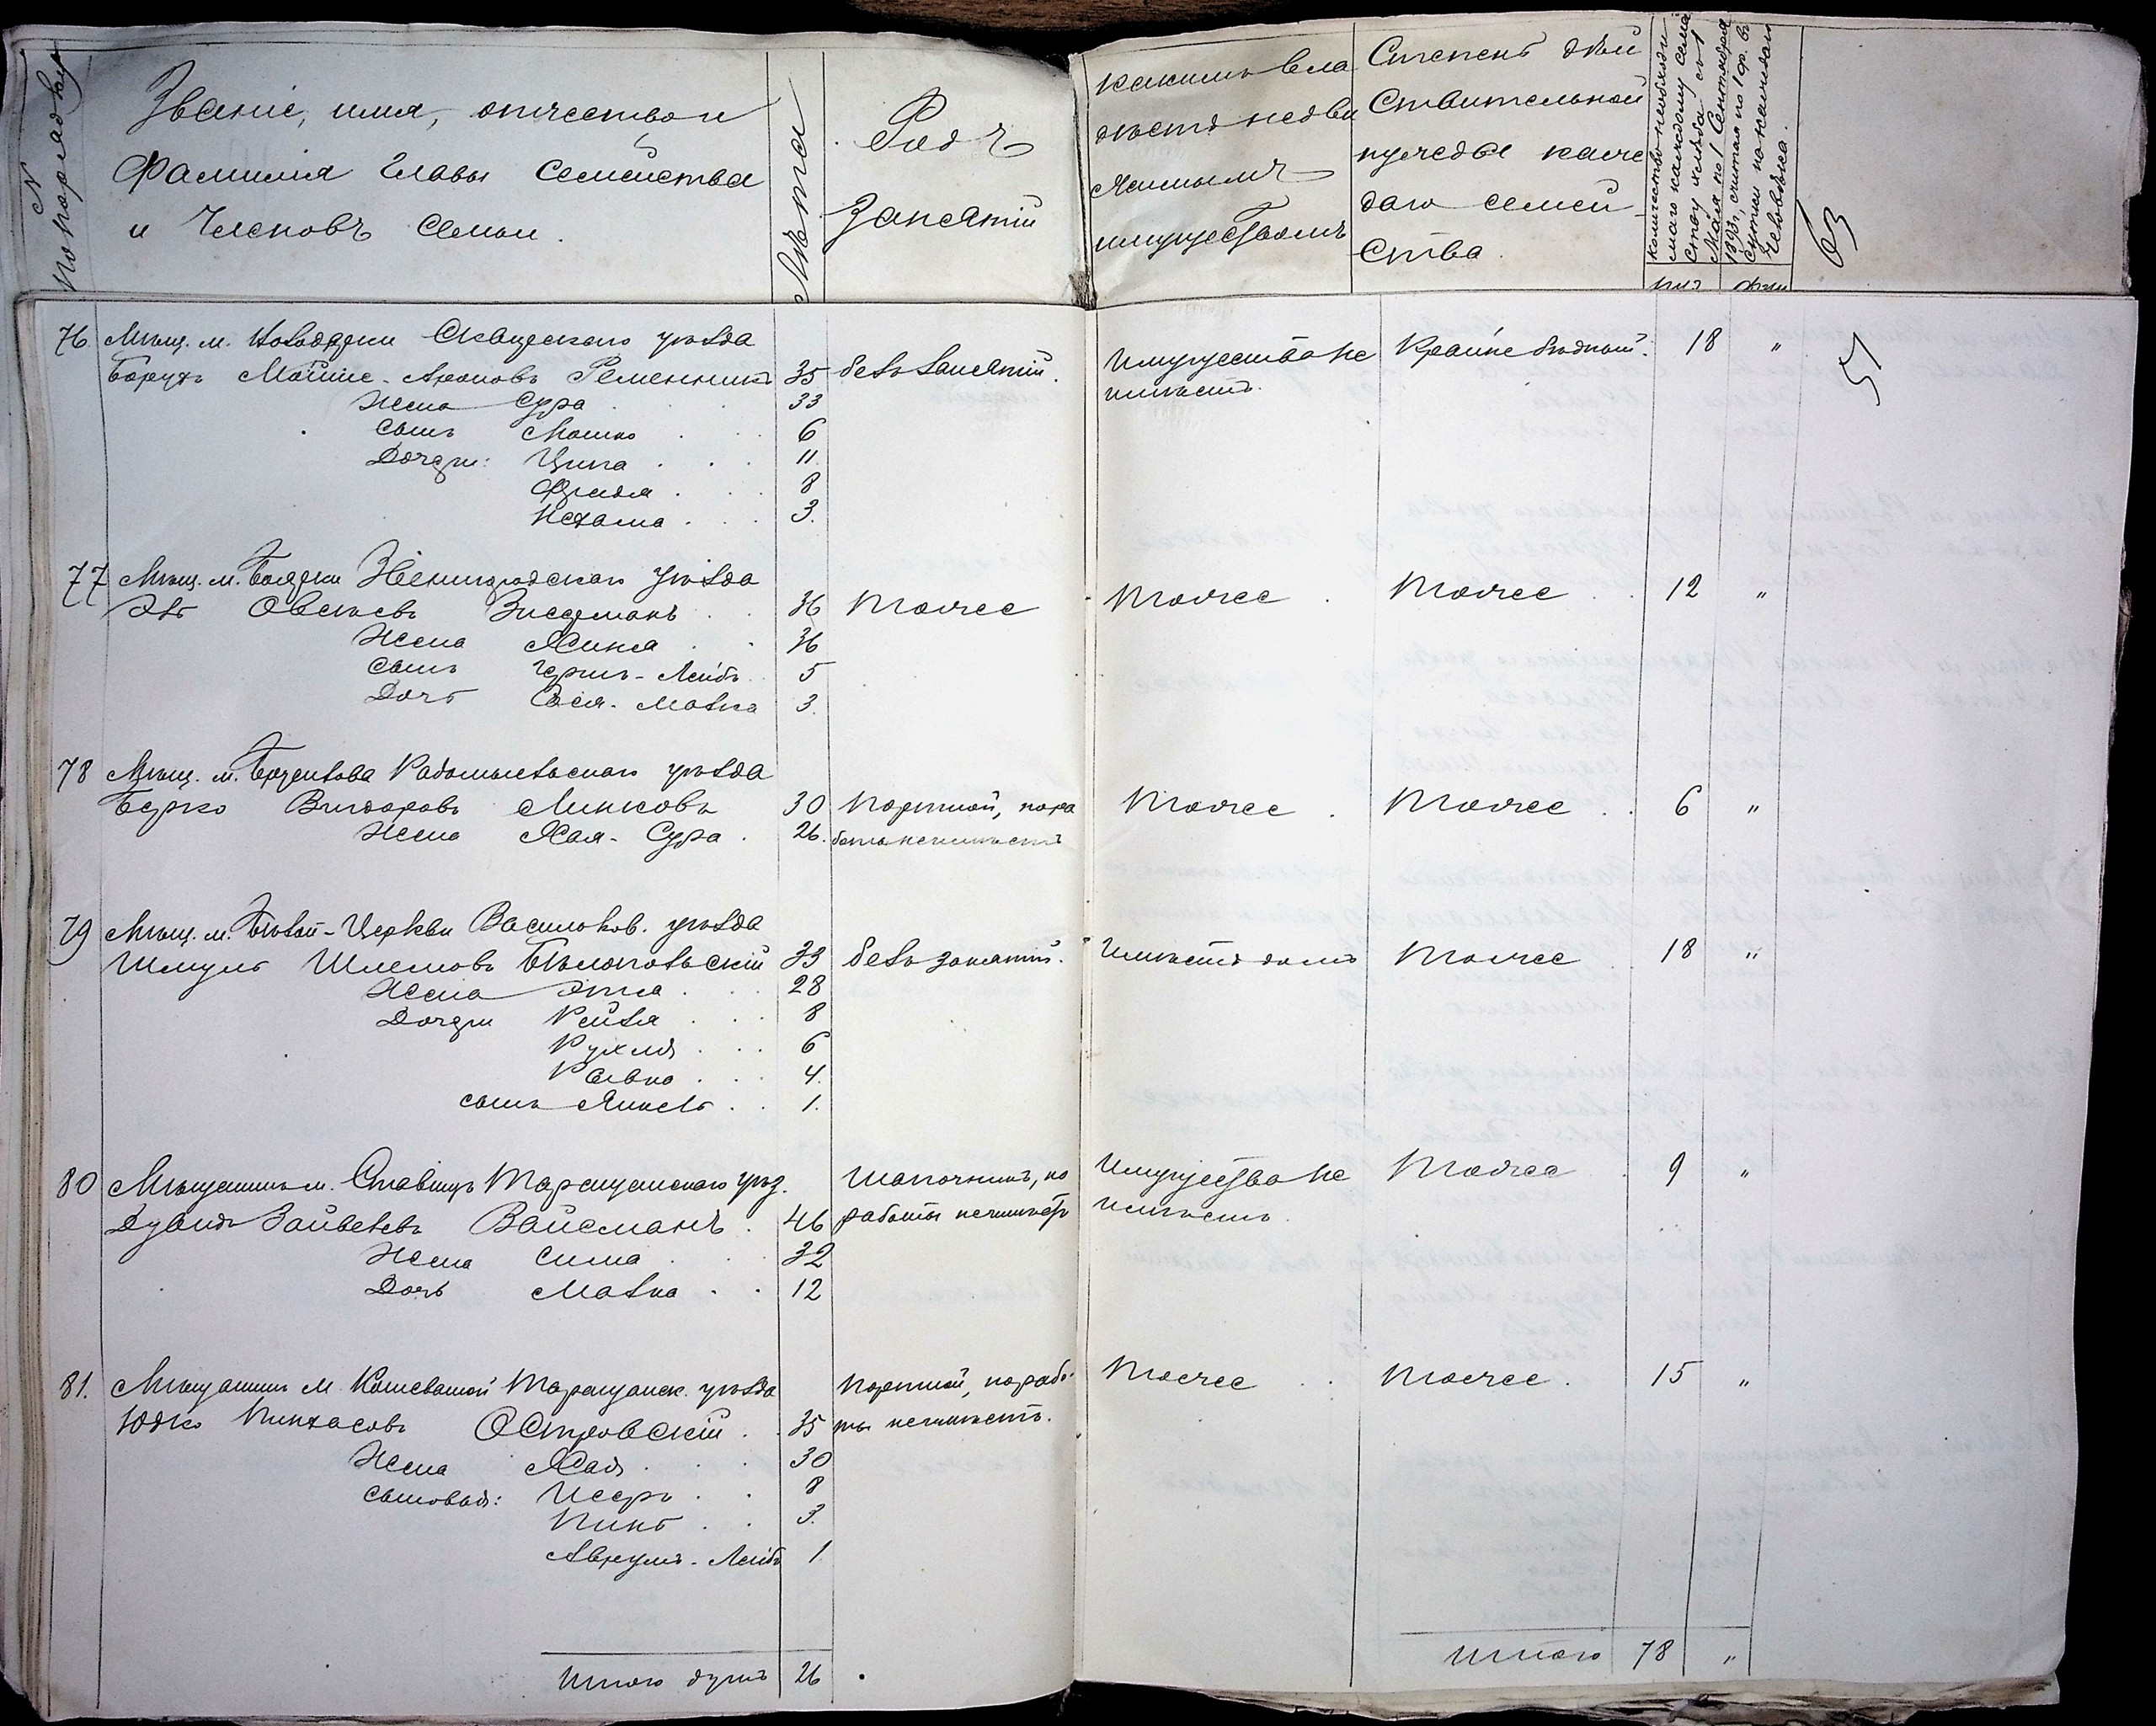 № по порядку
Званіе, имя, отчество и
Фамилія Главы Семейства
и Членовъ Семьи.
Лѣта
Родъ
Занятій
Какимъ вла
дѣетъ недви
жимымъ
имуществомъ
Степень дѣй
ствительной
нужды каж
даго семей-
ства.
количество необходи
маго каждому семей
ству хлѣба съ 1
Мая по 1 Сентября
1893 г., считая по 1 ф. въ
сутки на каждаго
человѣка.
пуд. фун.
63
51
76. Мѣщ. м. Володарки Сквирскаго уѣзда
Борухъ Мойше-Ароновъ Ременникъ 35 безъ занятій. Имущества не Крайне бѣдный. 18 "
имѣетъ.
Жена Сура 33
Сынъ Мошко 6
Дочери: Ципа 11
Фрида 8
Нехама 3.
77 Мѣщ. м. Боярки Звенигородскаго уѣзда
Овсеевъ Зиссерманъ 36 Тоже Тоже Тоже 12 "
Жена 36
Сынъ Гершъ-Лейбъ 5
Дочь Бася-Малка 3.
78 Мѣщ. м. Брусилова Радомысльскаго уѣзда
Берко Вигдоровъ Линковъ 30 Портной, но ра Тоже Тоже 6 "
Жена Хая-Сура 26. боты не имѣетъ
79 Мѣщ. м. Бѣлой-Церкви Васильков. уѣзда
Шмуль Шлемовъ Бѣлопольскій 33 безъ занятій. Имѣетъ домъ Тоже 18 "
Жена Этля 28
Дочери Рейзя 8
Рухля 6
Ривка 4.
сынъ Янкель 1.
80 Мѣщанинъ м. Ставищъ Таращанскаго уѣз. Шапочникъ, но Имущества не Тоже 9 "
Дувидъ Зайвелевъ Вайсманъ 46 работы не имѣетъ имѣетъ
Жена Сима 32
Дочь Малка 12
81. Мѣщанинъ м. Кошеватой Таращанск. уѣзда Портной, но рабо- Тоже Тоже. 15 "
Юдко Пинхасовъ Островскій 35 ты не имѣетъ.
Жена Хая 30
Сыновья: Иссръ 8
Пиня 3.
Аврумъ-Лейбъ 1
Итого душъ 26
Итого 78 "